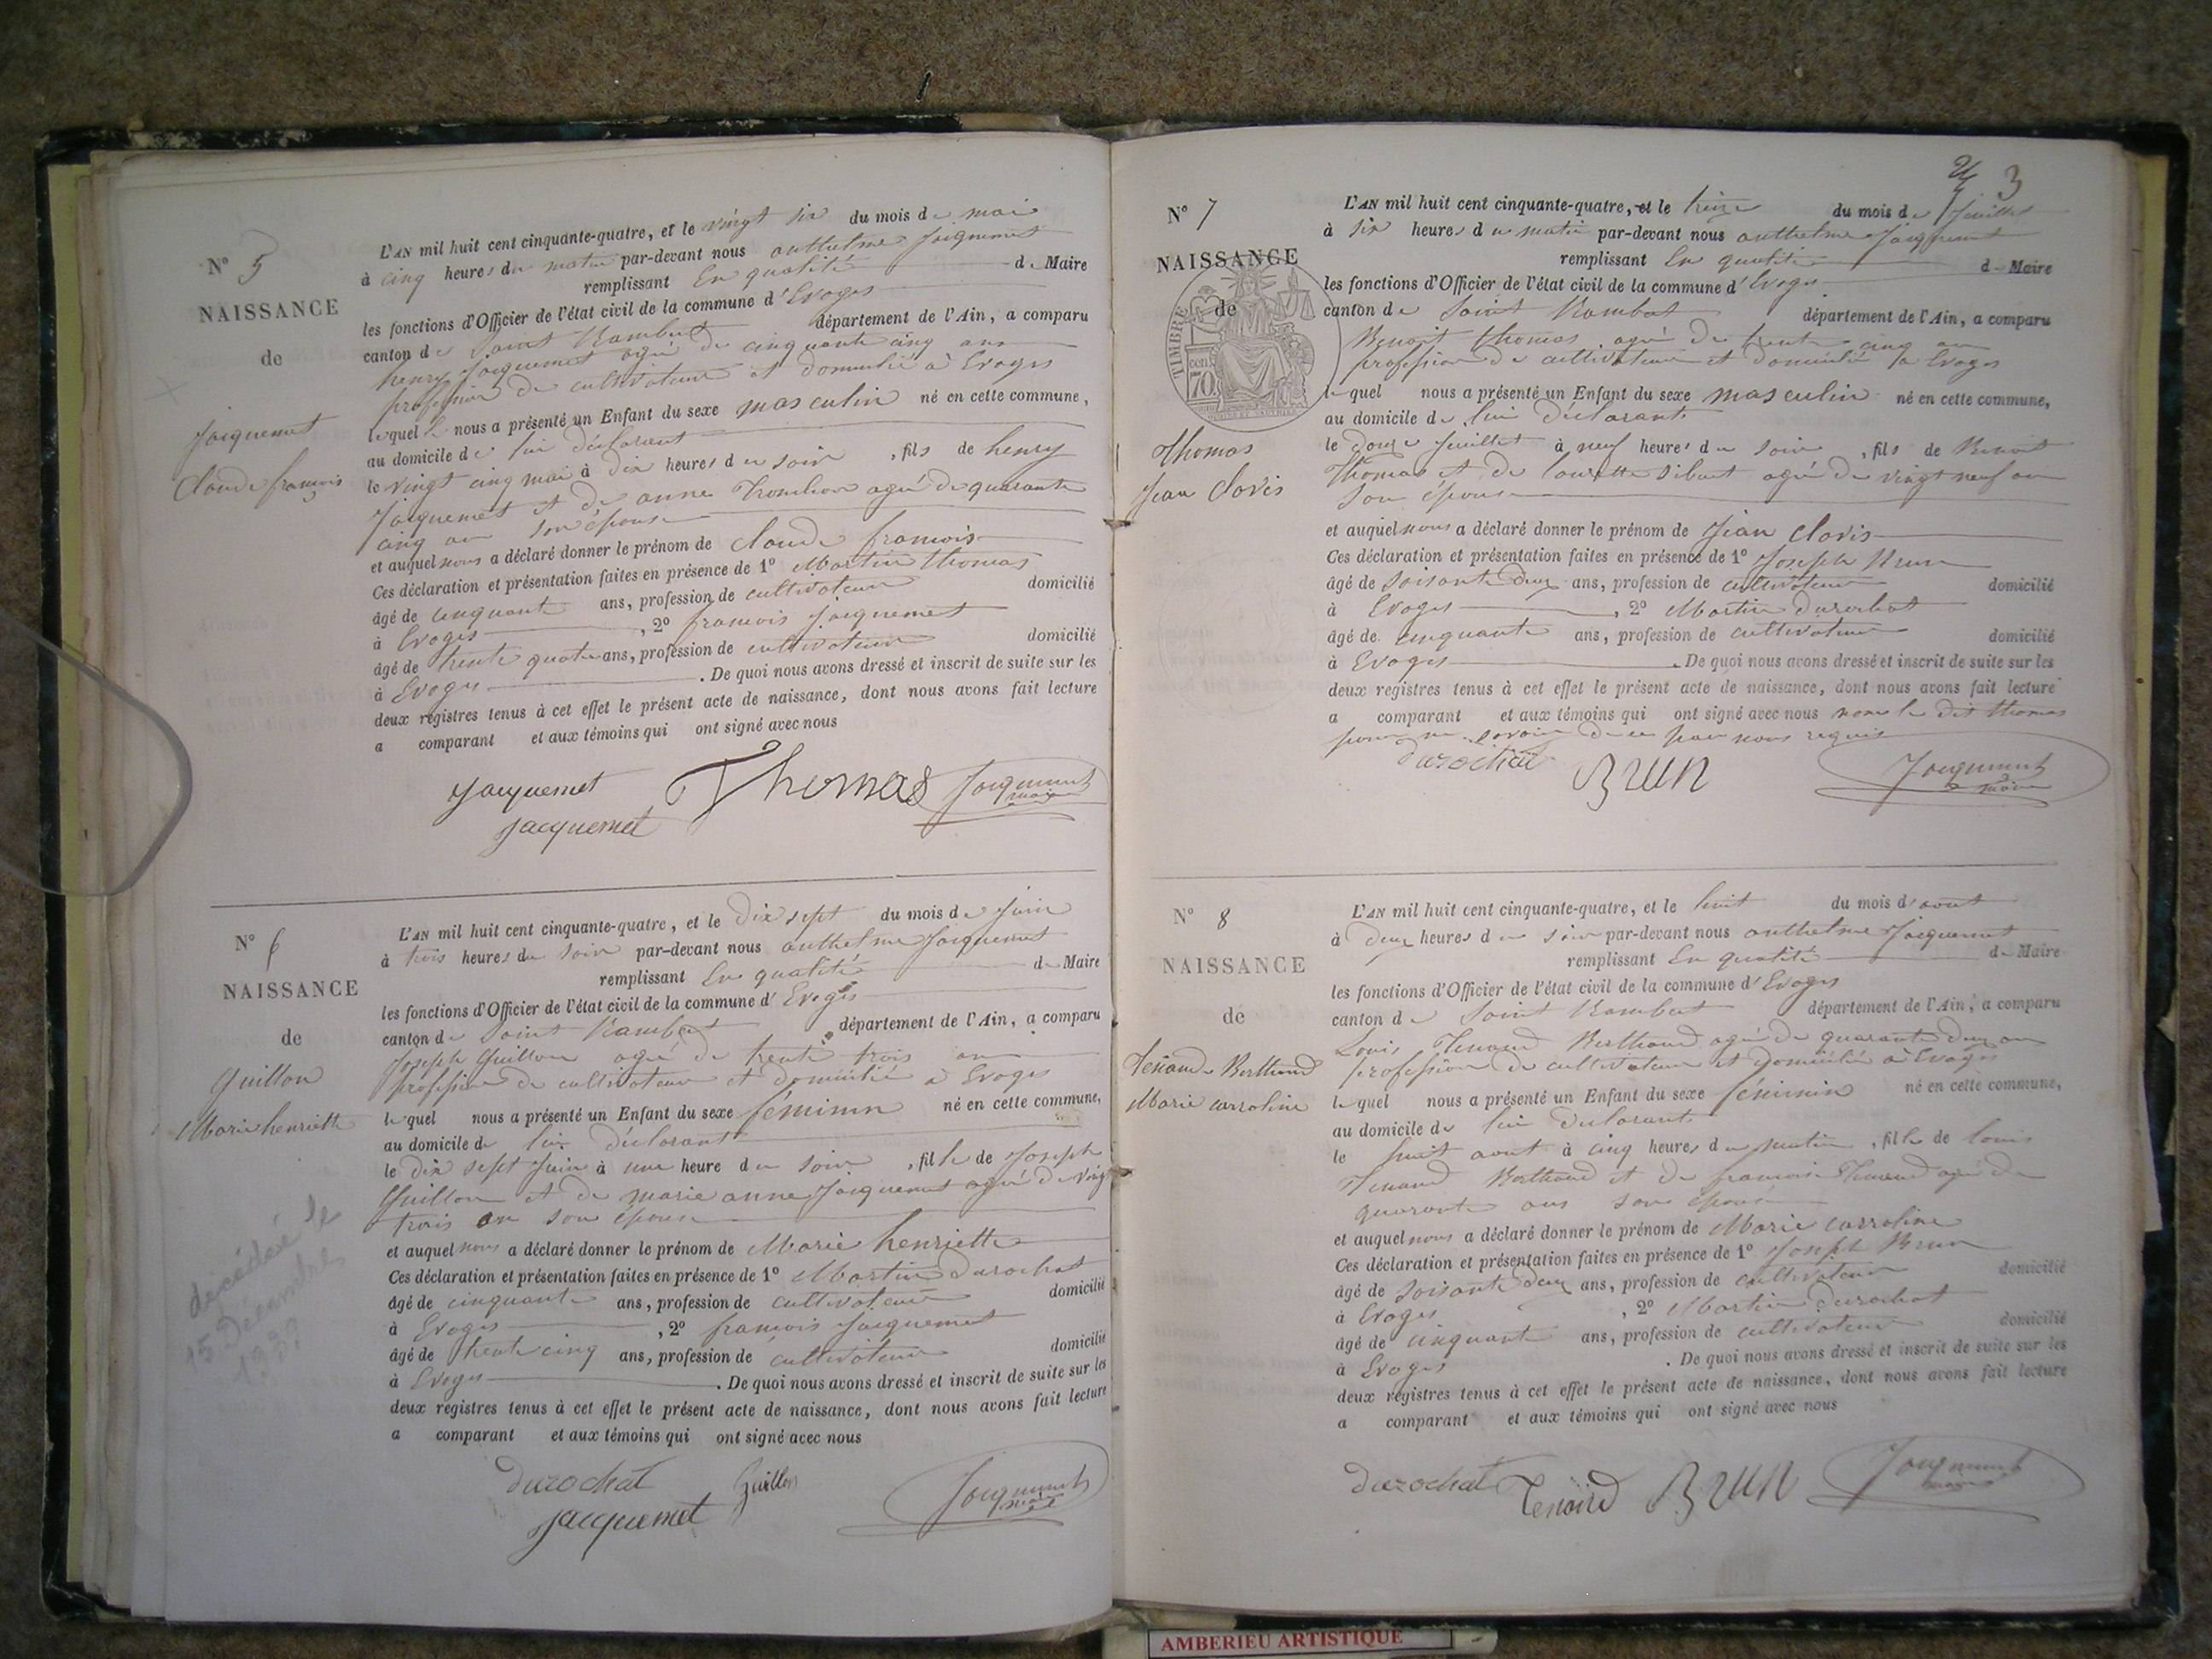 N° 5
NAISSANCE
de
Jacquemet
Claude françois
L'AN mil huit cent cinquante-quatre, et le vingt six du mois de mai
à cinq heures du matin par-devant nous anthelme Jacquemet
remplissant En qualité de Maire
les fonctions d'Officier de l'état civil de la commune d'Evoges
canton de Saint Rambert département de l'Ain, a comparu
henry Jacquemet agé de cinquante cinq ans
profession de cultivateur et domicilié à Evoges
lequel nous a présenté un Enfant du sexe masculin né en cette commune,
au domicile de lui déclarant
le vingt cinq mai à dix heures du soir, fils de henry
Jacquemet et de anne Trombon agé de quarante
cinq an son épouse
et auquel nous a déclaré donner le prénom de claude francois
Ces déclaration et présentation faites en présence de 1° Martin thomas
âgé de cinquante ans, profession de cultivateur domicilié
à Evoges, 2° francois jacquemet
âgé de trente quatre ans, profession de cultivateur domicilié
à Evoges. De quoi nous avons dressé et inscrit de suite sur les
deux registres tenus à cet effet le présent acte de naissance, dont nous avons fait lecture
a comparant et aux témoins qui ont signé avec nous
Jacquemet Thomas Jacquemet
maire
Jacquemet
N° 6
NAISSANCE
de
Guillon
Marie henriette
décédée le
15 Décembre
L'AN mil huit cent cinquante-quatre, et le Dix sept du mois de Juin
à trois heures du soir par-devant nous anthelme Jacquemet
remplissant En qualité de Maire
les fonctions d'Officier de l'état civil de la commune d'Evoges
canton de Saint Rambert département de l'Ain, a comparu
Joseph Guillon agé de trente trois an
profession de cultivateur et domicilié à Evoges
lequel nous a présenté un Enfant du sexe féminin né en cette commune,
au domicile de lui declarant
le dix sept Juin à une heure du soir, fille de Joseph
Guillon et de marie anne Jacquemet agé de vingt
trois an son épouse
et auquel nous a déclaré donner le prénom de Marie henriette
Ces déclaration et présentation faites en présence de 1° Martin durochat
âgé de cinquante ans, profession de cultivateur domicilié
à Evoges, 2° francois Jacquemet
âgé de trente cinq ans, profession de cultivateur domicilié
à Evoges. De quoi nous avons dressé et inscrit de suite sur les
deux registres tenus à cet effet le présent acte de naissance, dont nous avons fait lecture
a comparant et aux témoins qui ont signé avec nous
durochat Guillon Jacquemet
maire
Jacquemet
3
N° 7
NAISSANCE
de
TIMBRE
70 cen
Thomas
Jean Clovis
L'AN mil huit cent cinquante-quatre, et le treize du mois de Juillet
à six heures du matin par-devant nous anthelme Jacquemet
remplissant En qualité de Maire
les fonctions d'Officier de l'état civil de la commune d'Evoges
canton de Saint Rambert département de l'Ain, a comparu
Benoit thomas agé de trente cinq an
profession de cultivateur et domicilié à Evoges
lequel nous a présenté un Enfant du sexe masculin né en cette commune,
au domicile de lui declarant
le douze Juillet à neuf heures du soir, fils de Benoit
Thomas et de Laurette sibuet agé de vingt neuf an
son épouse
et auquel nous a déclaré donner le prénom de Jean Clovis
Ces déclaration et présentation faites en présence de 1° Joseph Brun
âgé de soisante deux ans, profession de cultivateur domicilié
à Evoges, 2° Martin durochat
âgé de cinquante ans, profession de cultivateur domicilié
à Evoges. De quoi nous avons dressé et inscrit de suite sur les
deux registres tenus à cet effet le présent acte de naissance, dont nous avons fait lecture
a comparant et aux témoins qui ont signé avec nous non le dit thomas
pour ne savoir de ce par nous requis
durochat BRUN Jacquemet
maire
N° 8
NAISSANCE
de
Tenand Berthaud
Marie carroline
L'AN mil huit cent cinquante-quatre, et le huit du mois d'aout
à deux heures du soir par-devant nous anthelme Jacquemet
remplissant En qualité de Maire
les fonctions d'Officier de l'état civil de la commune d'Evoges
canton de Saint Rambert département de l'Ain, a comparu
Louis Tenand Berthaud agé de quarante deux an
profession de cultivateur et domicilié à Evoges
lequel nous a présenté un Enfant du sexe féminin né en cette commune,
au domicile de lui declarant
le huit aout à cinq heures du matin, fille de louis
Tenand Berthaud et de francoise Tenand agé de
quarante ans son épouse
et auquel nous a déclaré donner le prénom de Marie carroline
Ces déclaration et présentation faites en présence de 1° Joseph Brun
âgé de soisante deux ans, profession de cultivateur domicilié
à Evoges, 2° Martin durochat
âgé de cinquante ans, profession de cultivateur domicilié
à Evoges. De quoi nous avons dressé et inscrit de suite sur les
deux registres tenus à cet effet le présent acte de naissance, dont nous avons fait lecture
a comparant et aux témoins qui ont signé avec nous
durochat Tenaird BRUN Jacquemet
maire
AMBERIEU ARTISTIQUE